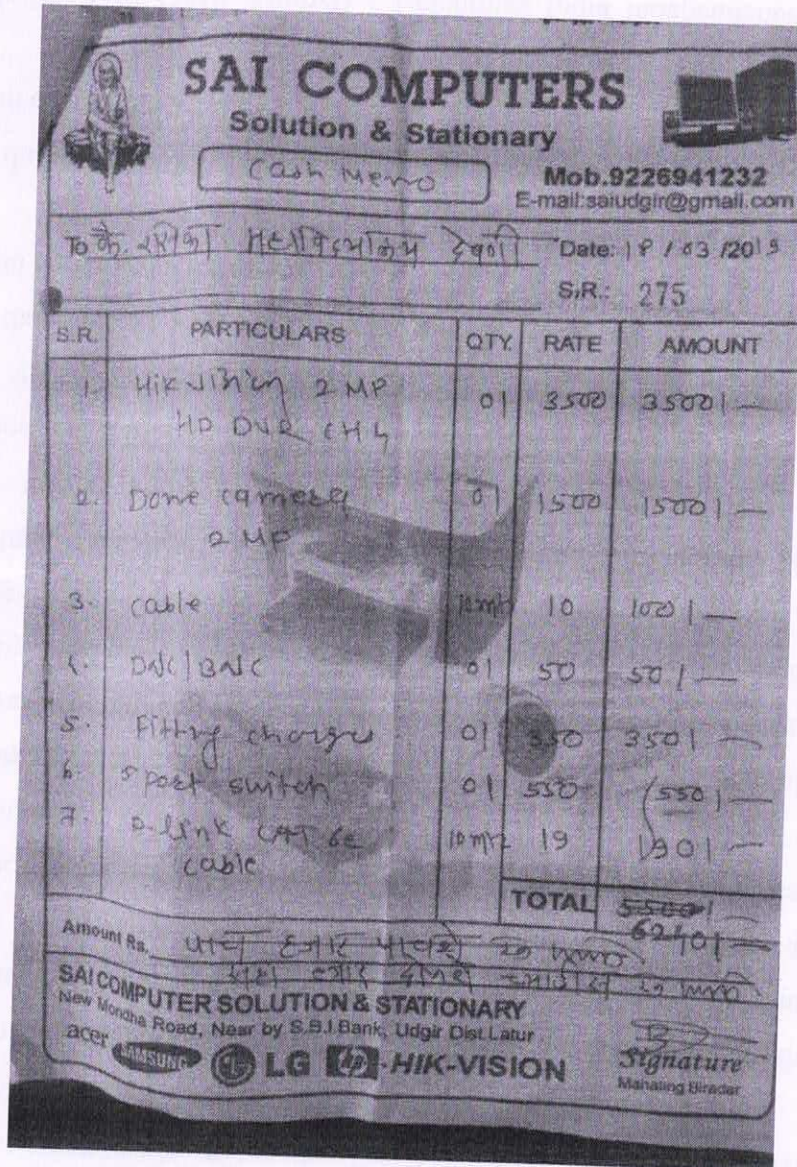 SAI COMPUTERS
Solution & Stationary
Cash Memo
Mob.9226941232
E-mail:saiudgir@gmail.com
To कै. रसिका महाविद्यालय देवणी Date: 18 / 03 /2019
S.R.: 275
S.R. PARTICULARS QTY. RATE AMOUNT
1. Hik 2 MP 01 3500 3500/—
HD DVR CH 4
2. Dome camera 01 1500 1500/—
2 MP
3. cable 10 mtr 10 100/—
4. DNC/BNC 01 50 50/—
5. Fitting charges 01 350 350/—
6. 5 port switch 01 550 550/—
7. D-link CAT 6e 10 mtr 19 190/—
cable
TOTAL 5500/—
6240/=
Amount Rs. पाच हजार पाचशे रु मात्र
सहा हजार दोनशे चाळीस रु मात्र
SAI COMPUTER SOLUTION & STATIONARY
New Mondha Road, Near by S.B.I.Bank, Udgir Dist.Latur
acer SAMSUNG LG hp HIK-VISION
Signature
Mahaling Biradar